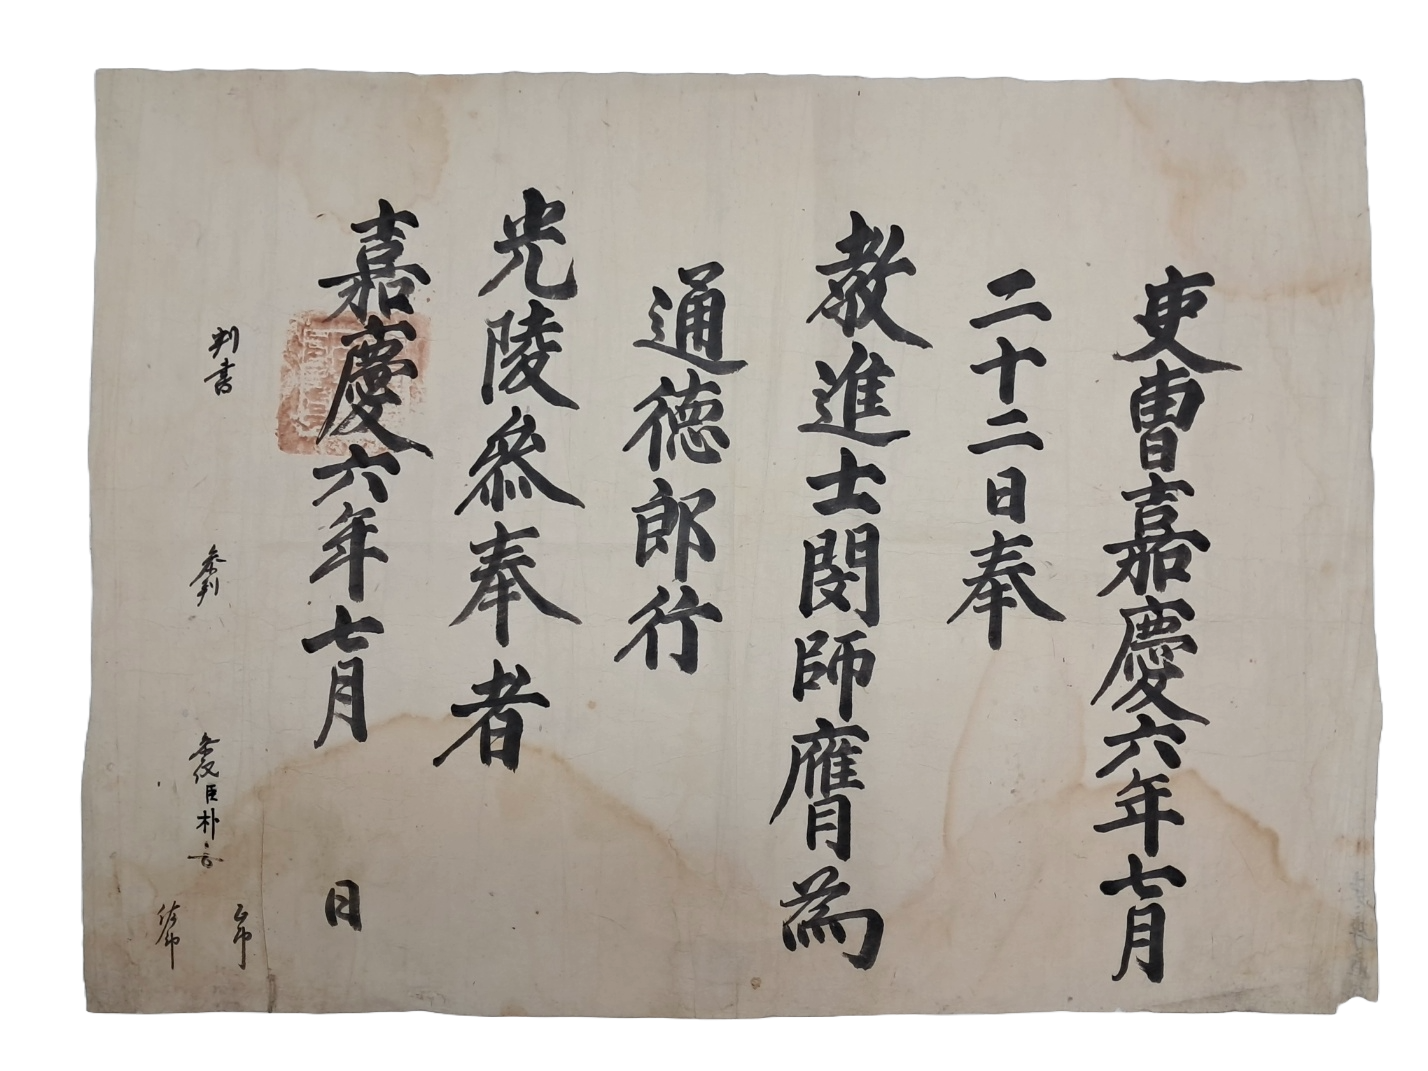 吏曹嘉慶六年七月
二十二日奉
教進士閔師膺為
通德郎行
光陵參奉者
嘉慶六年七月 日
判書 參判 參議臣朴 正郎
佐郎